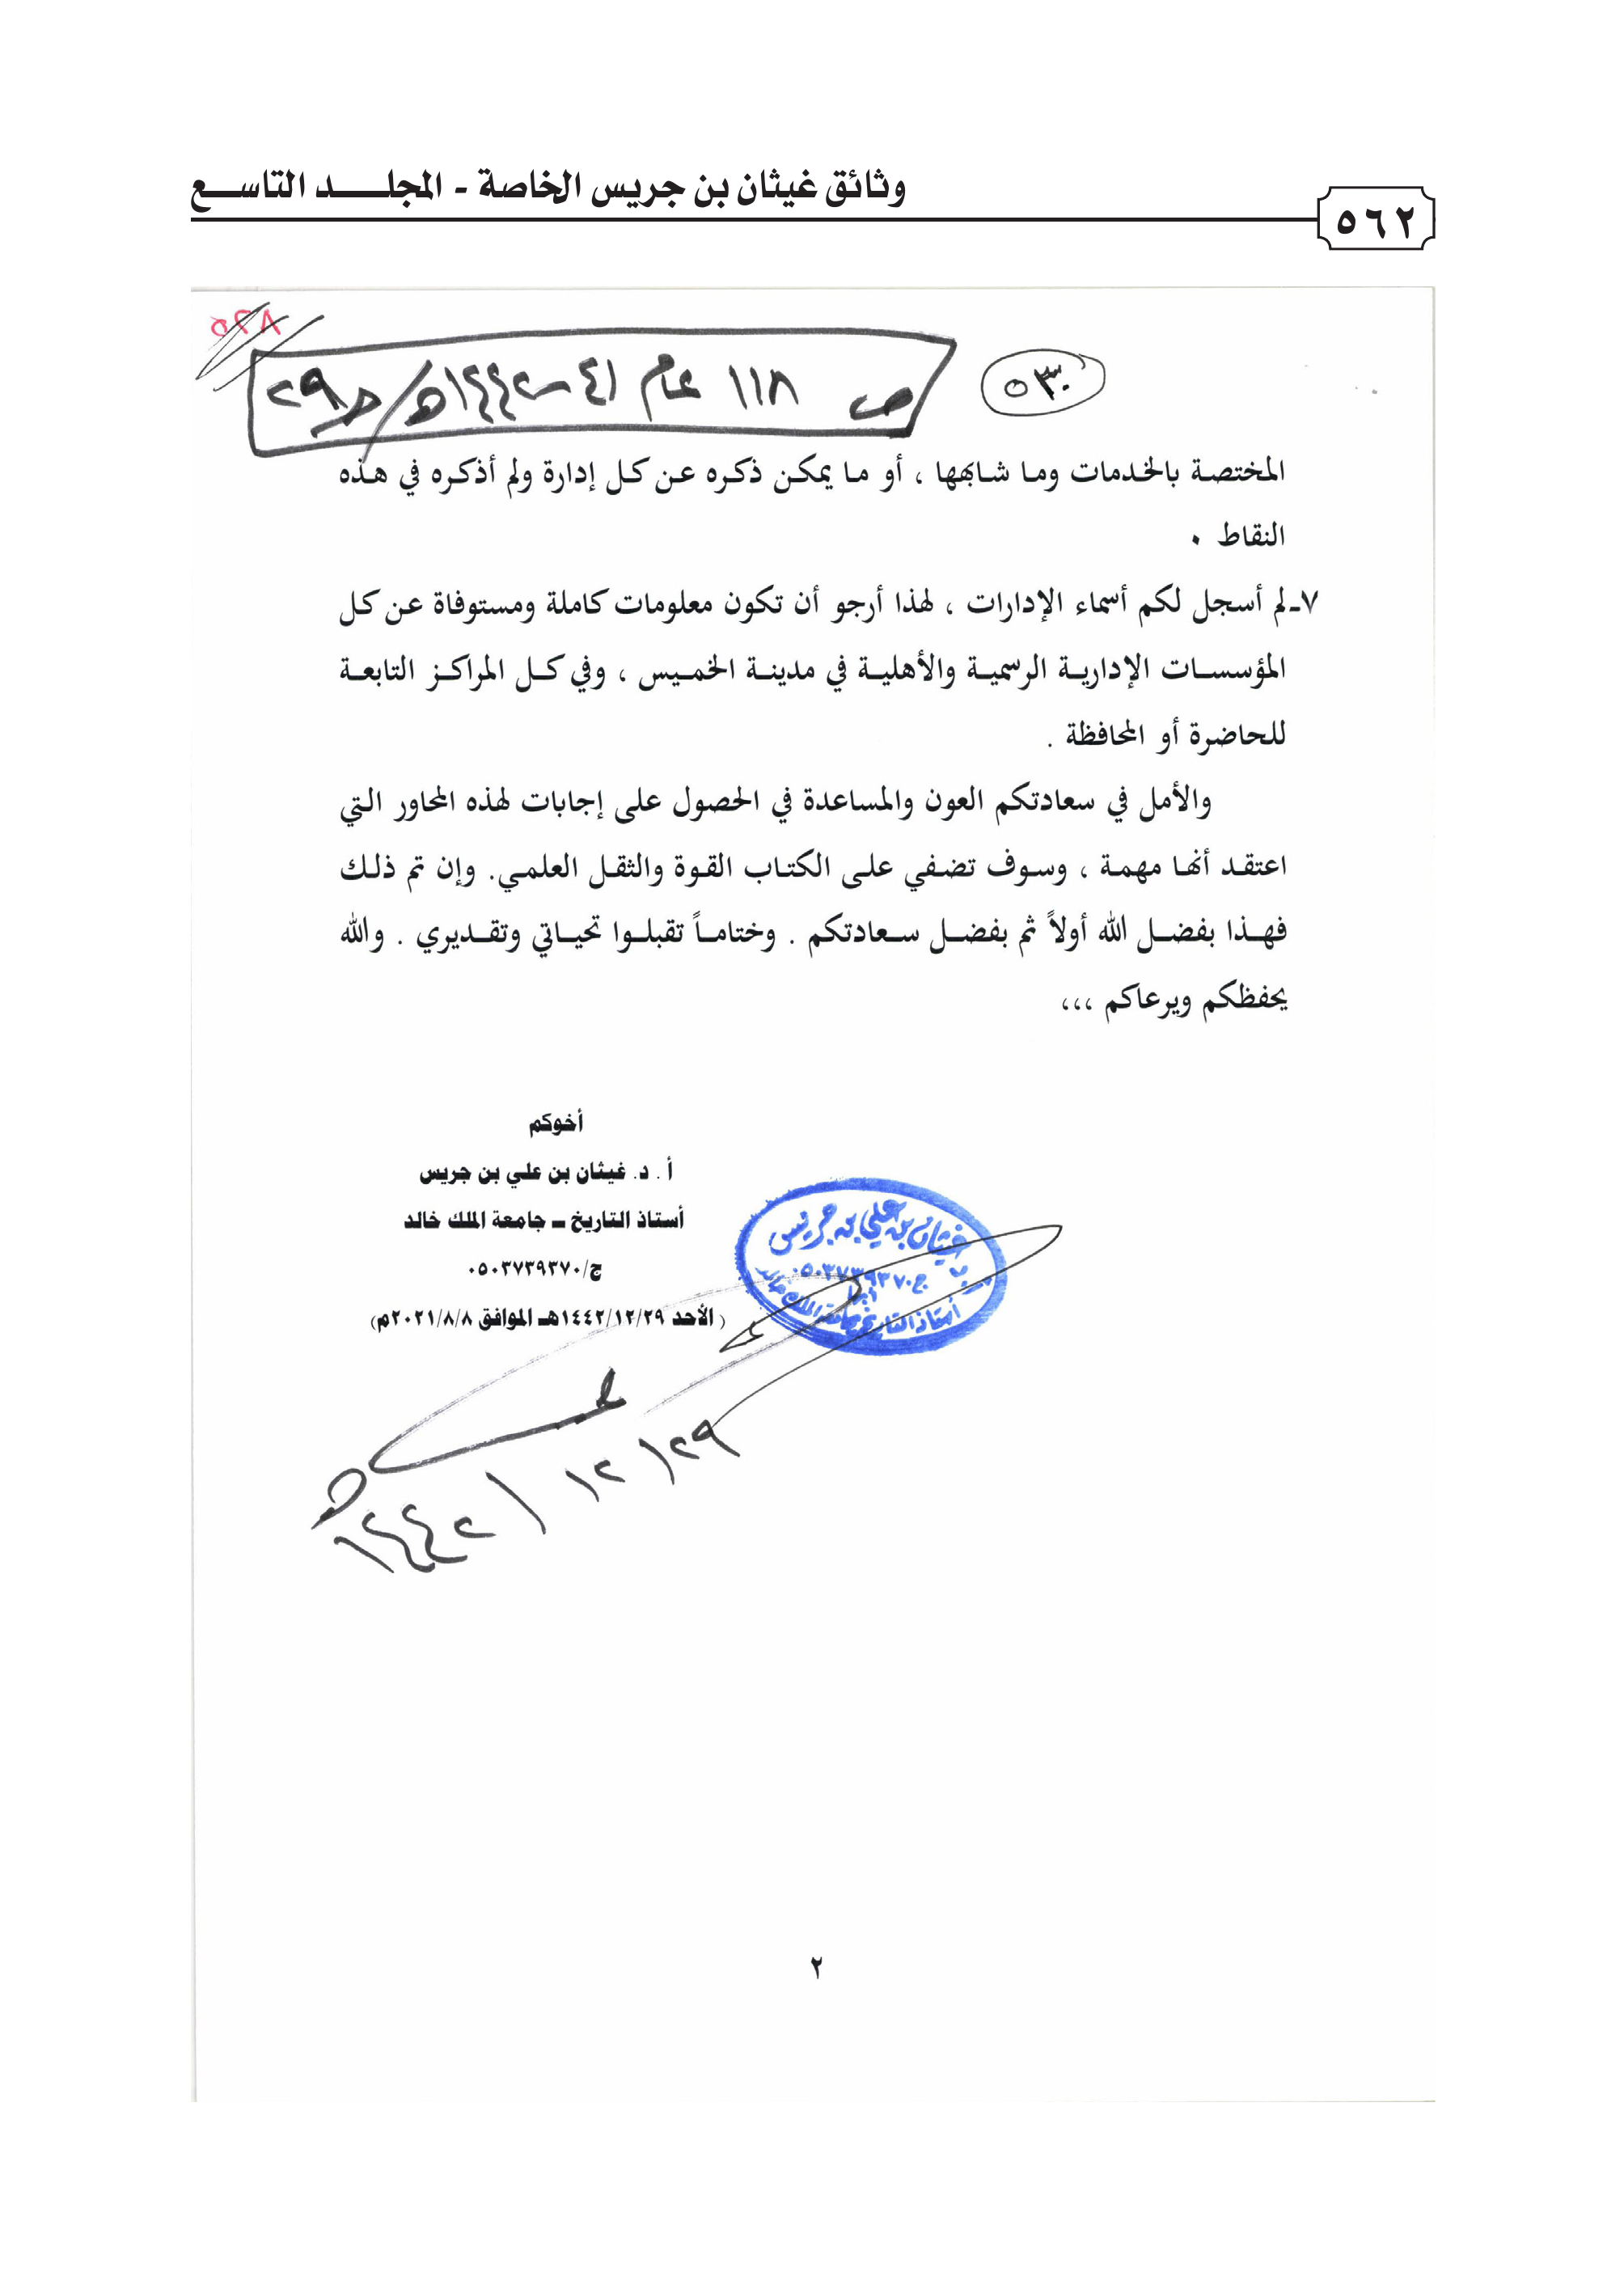 وثائق غيثان بن جريس الخاصة - المجلــــد التاســـع
٥٦٢
٥٢٨
٥٣٠
ص ١١٨ عام ٤١-١٤٤٢هـ/ م٢٩
المختصة بالخدمات وما شابهها ، أو ما يمكن ذكره عن كل إدارة ولم أذكره في هذه
النقاط ٠
٧-لم أسجل لكم أسماء الإدارات ، لهذا أرجو أن تكون معلومات كاملة ومستوفاة عن كل
المؤسسات الإدارية الرسمية والأهلية في مدينة الخميس ، وفي كل المراكز التابعة
للحاضرة أو المحافظة .
والأمل في سعادتكم العون والمساعدة في الحصول على إجابات لهذه المحاور التي
اعتقد أنها مهمة ، وسوف تضفي على الكتاب القوة والثقل العلمي. وإن تم ذلك
فهذا بفضل الله أولاً ثم بفضل سعادتكم . وختاماً تقبلوا تحياتي وتقديري . والله
يحفظكم ويرعاكم ،،،
أخوكم
أ . د. غيثان بن علي بن جريس
أستاذ التاريخ – جامعة الملك خالد
ج/٠٥٠٣٧٣٩٣٧٠
( الأحد ١٤٤٢/١٢/٢٩هـ الموافق ٢٠٢١/٨/٨م)
غيثان بن علي بن جريس
ج ٠٥٠٣٧٣٩٣٧٠
أبها
أستاذ التاريخ بجامعة الملك خالد
٢٩/ ١٢ / ١٤٤٢هـ
٢